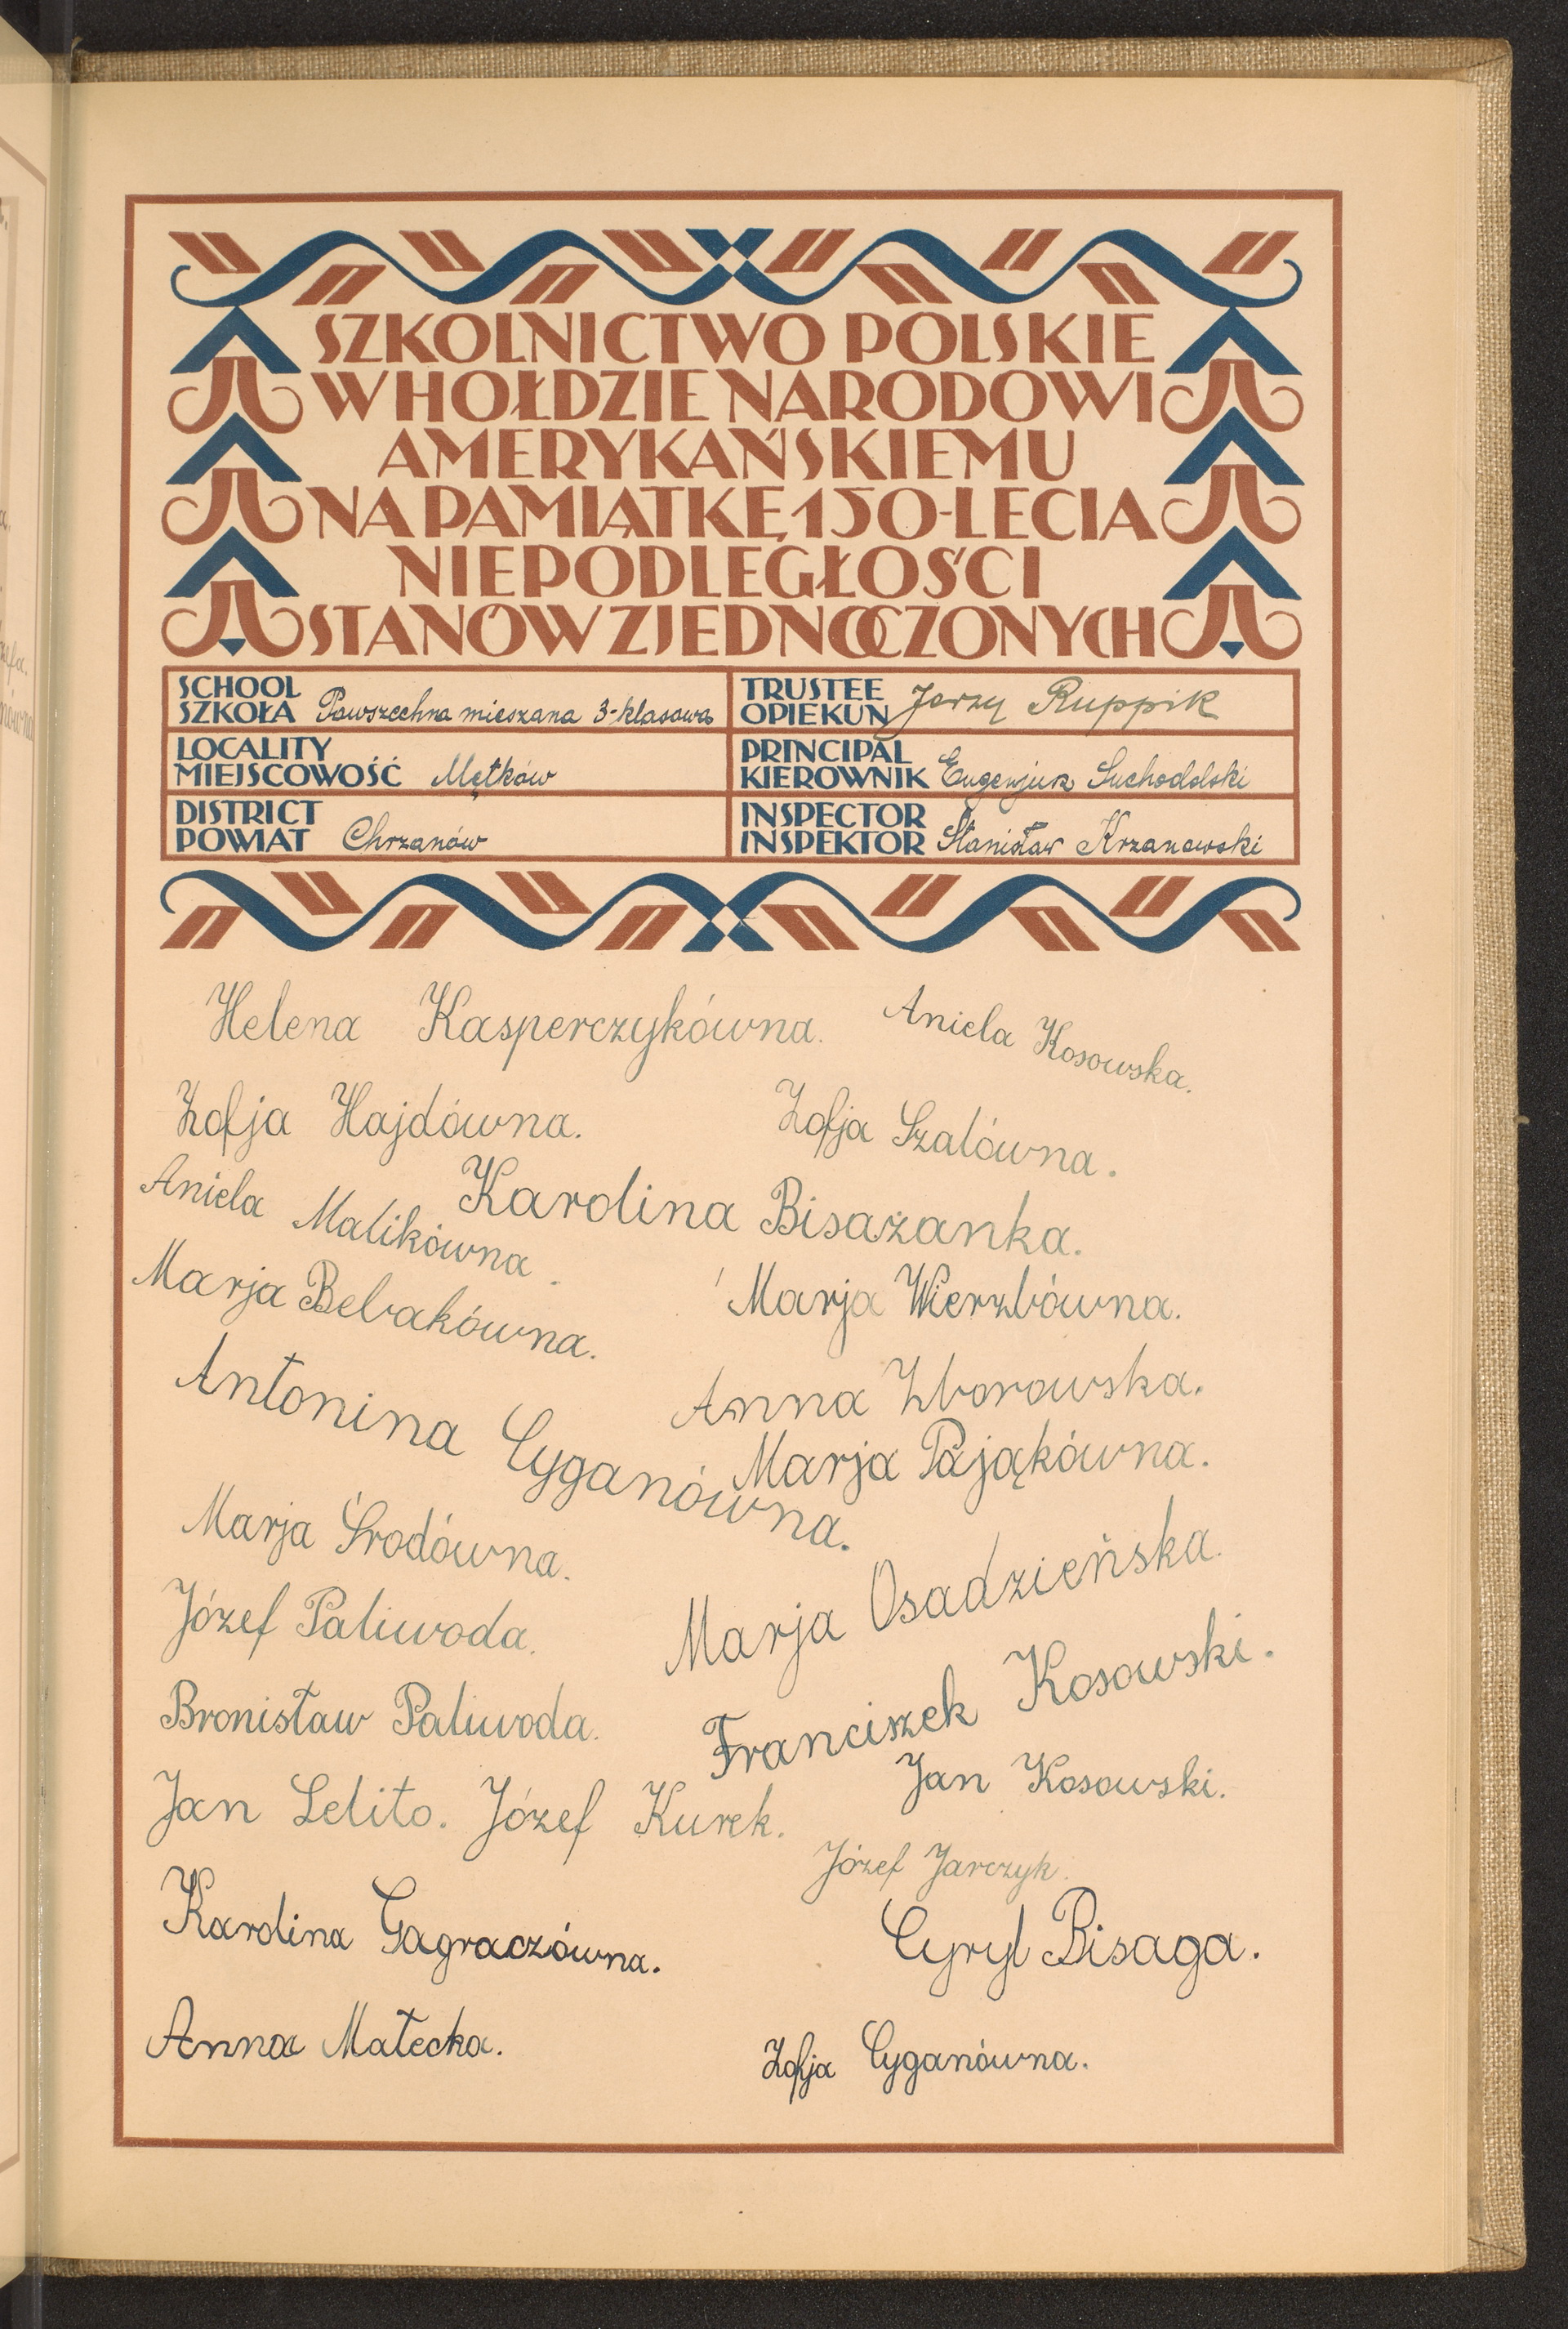 SZKOLNICTWO POLSKIE
W HOŁDZIE NARODOWI
AMERYKAŃSKIEMU
NA PAMIĄTKĘ 150-LECIA
NIEPODLEGŁOŚCI
STANÓW ZJEDNOCZONYCH
SCHOOL
SZKOŁA Powszechna mieszana 3-klasowa
TRUSTEE
OPIEKUN Jerzy Ruppik
LOCALITY
MIEJSCOWOŚĆ Mętków
PRINCIPAL
KIEROWNIK Eugenjusz Suchodolski
DISTRICT
POWIAT Chrzanów
INSPECTOR
INSPEKTOR Stanisław Krzanowski
Helena Kasperczykówna.
Aniela Kosowska.
Zofja Hajdówna.
Zofja Szalówna.
Aniela Malikówna.
Karolina Bisażanka.
Marja Bebakówna.
Marja Wierzbówna.
Antonina Cyganówna.
Anna Zborowska.
Marja Pająkówna.
Marja Środówna.
Marja Osadzieńska.
Józef Paliwoda.
Franciszek Kosowski.
Bronisław Paliwoda.
Jan Kosowski.
Jan Lelito. Józef Kurek.
Józef Jarczyk.
Karolina Gagraczówna.
Cyryl Bisaga.
Anna Małecka.
Zofja Cyganówna.